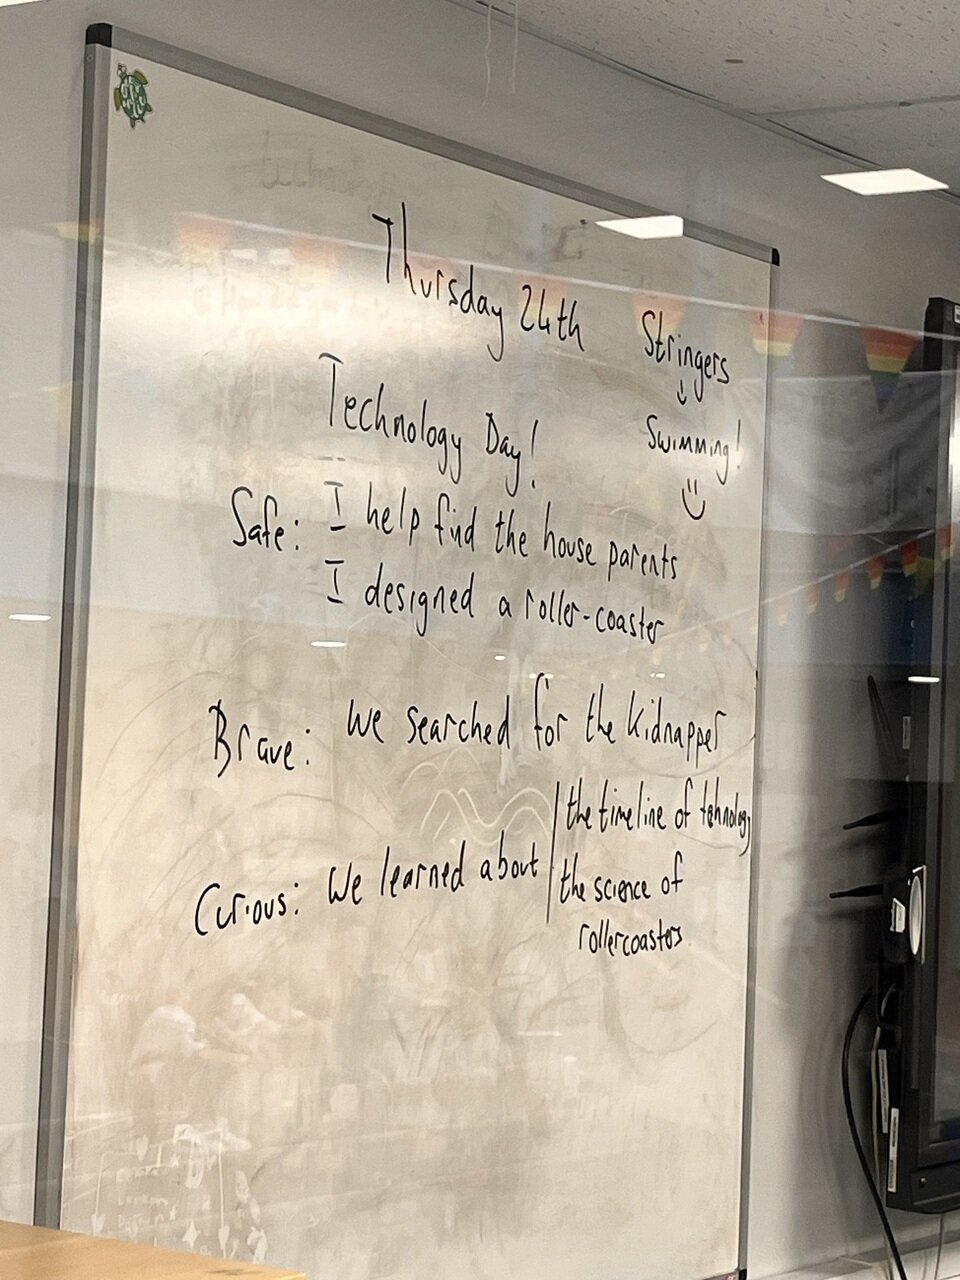 Thursday 24th
Stringers
Swimming!
Technology Day!
Safe: I help find the house parents
I designed a roller-coaster
Brave: We searched for the kidnapper
Curious: We learned about
the timeline of tehnology
the science of
rollercoasters